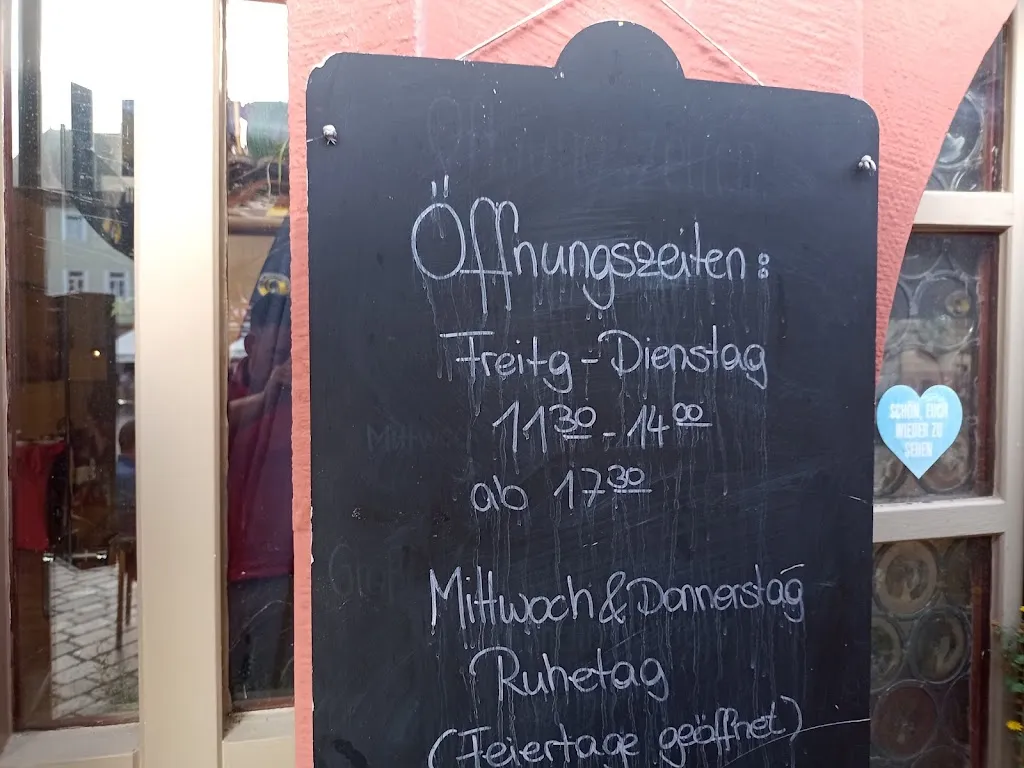 Öffnungszeiten:
Freitg - Dienstag
11³⁰ - 14⁰⁰
ab 17³⁰
Mittwoch & Donnerstag
Ruhetag
(Feiertage geöffnet)
SCHÖN, EUCH
WIEDER ZU
SEHEN